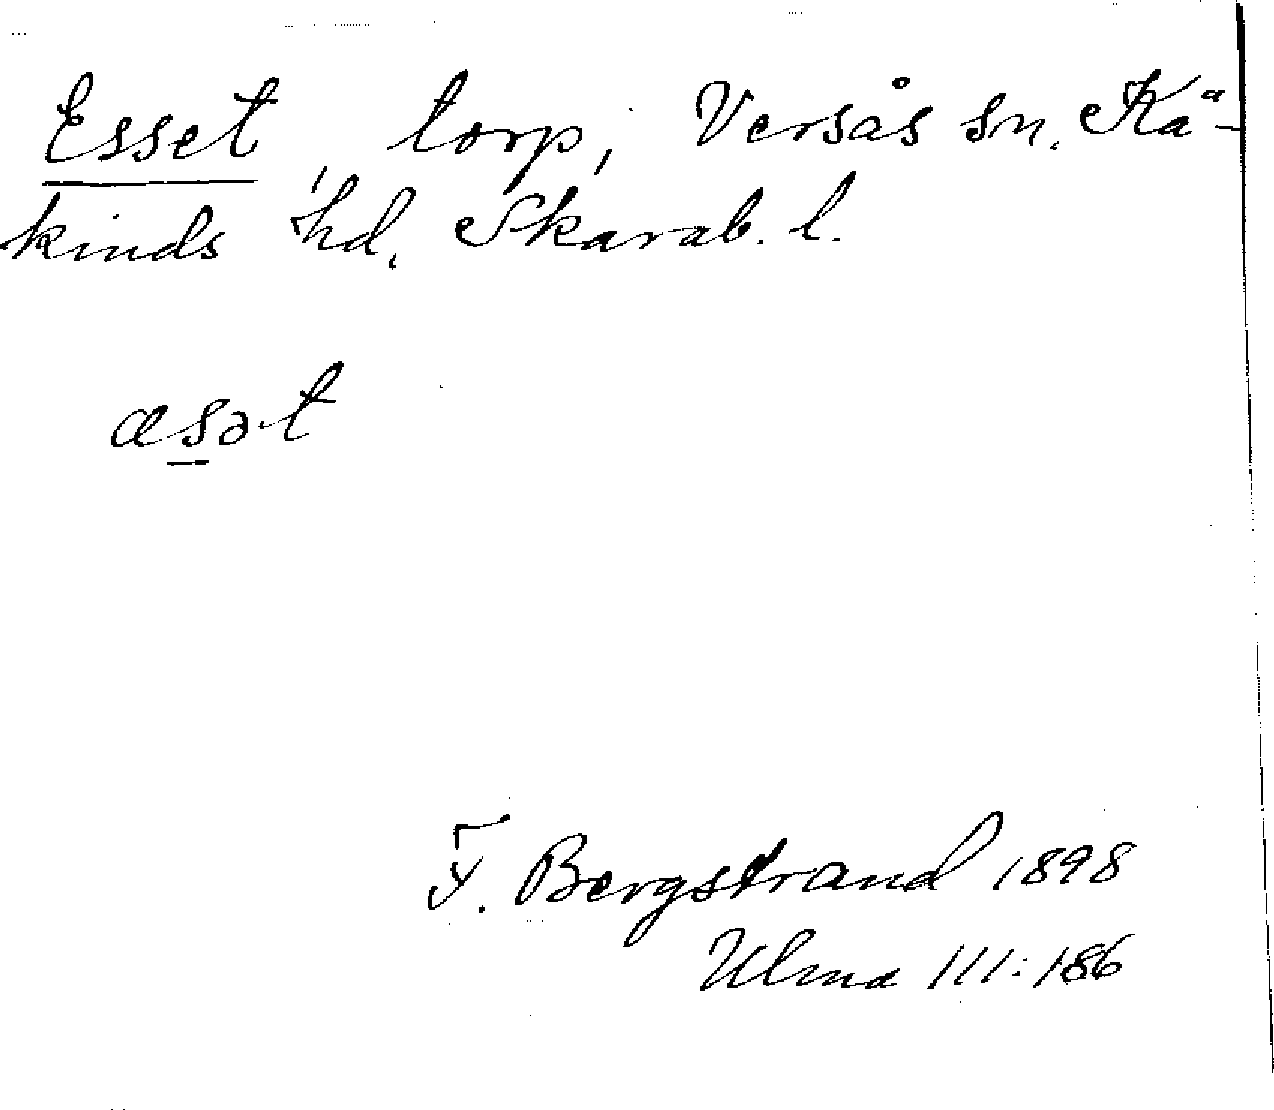 Esset, torp, Versås sn. Kä-
kinds hd. Skarab. l.
æsət
F. Bergstrand 1898
Ulma 111:186